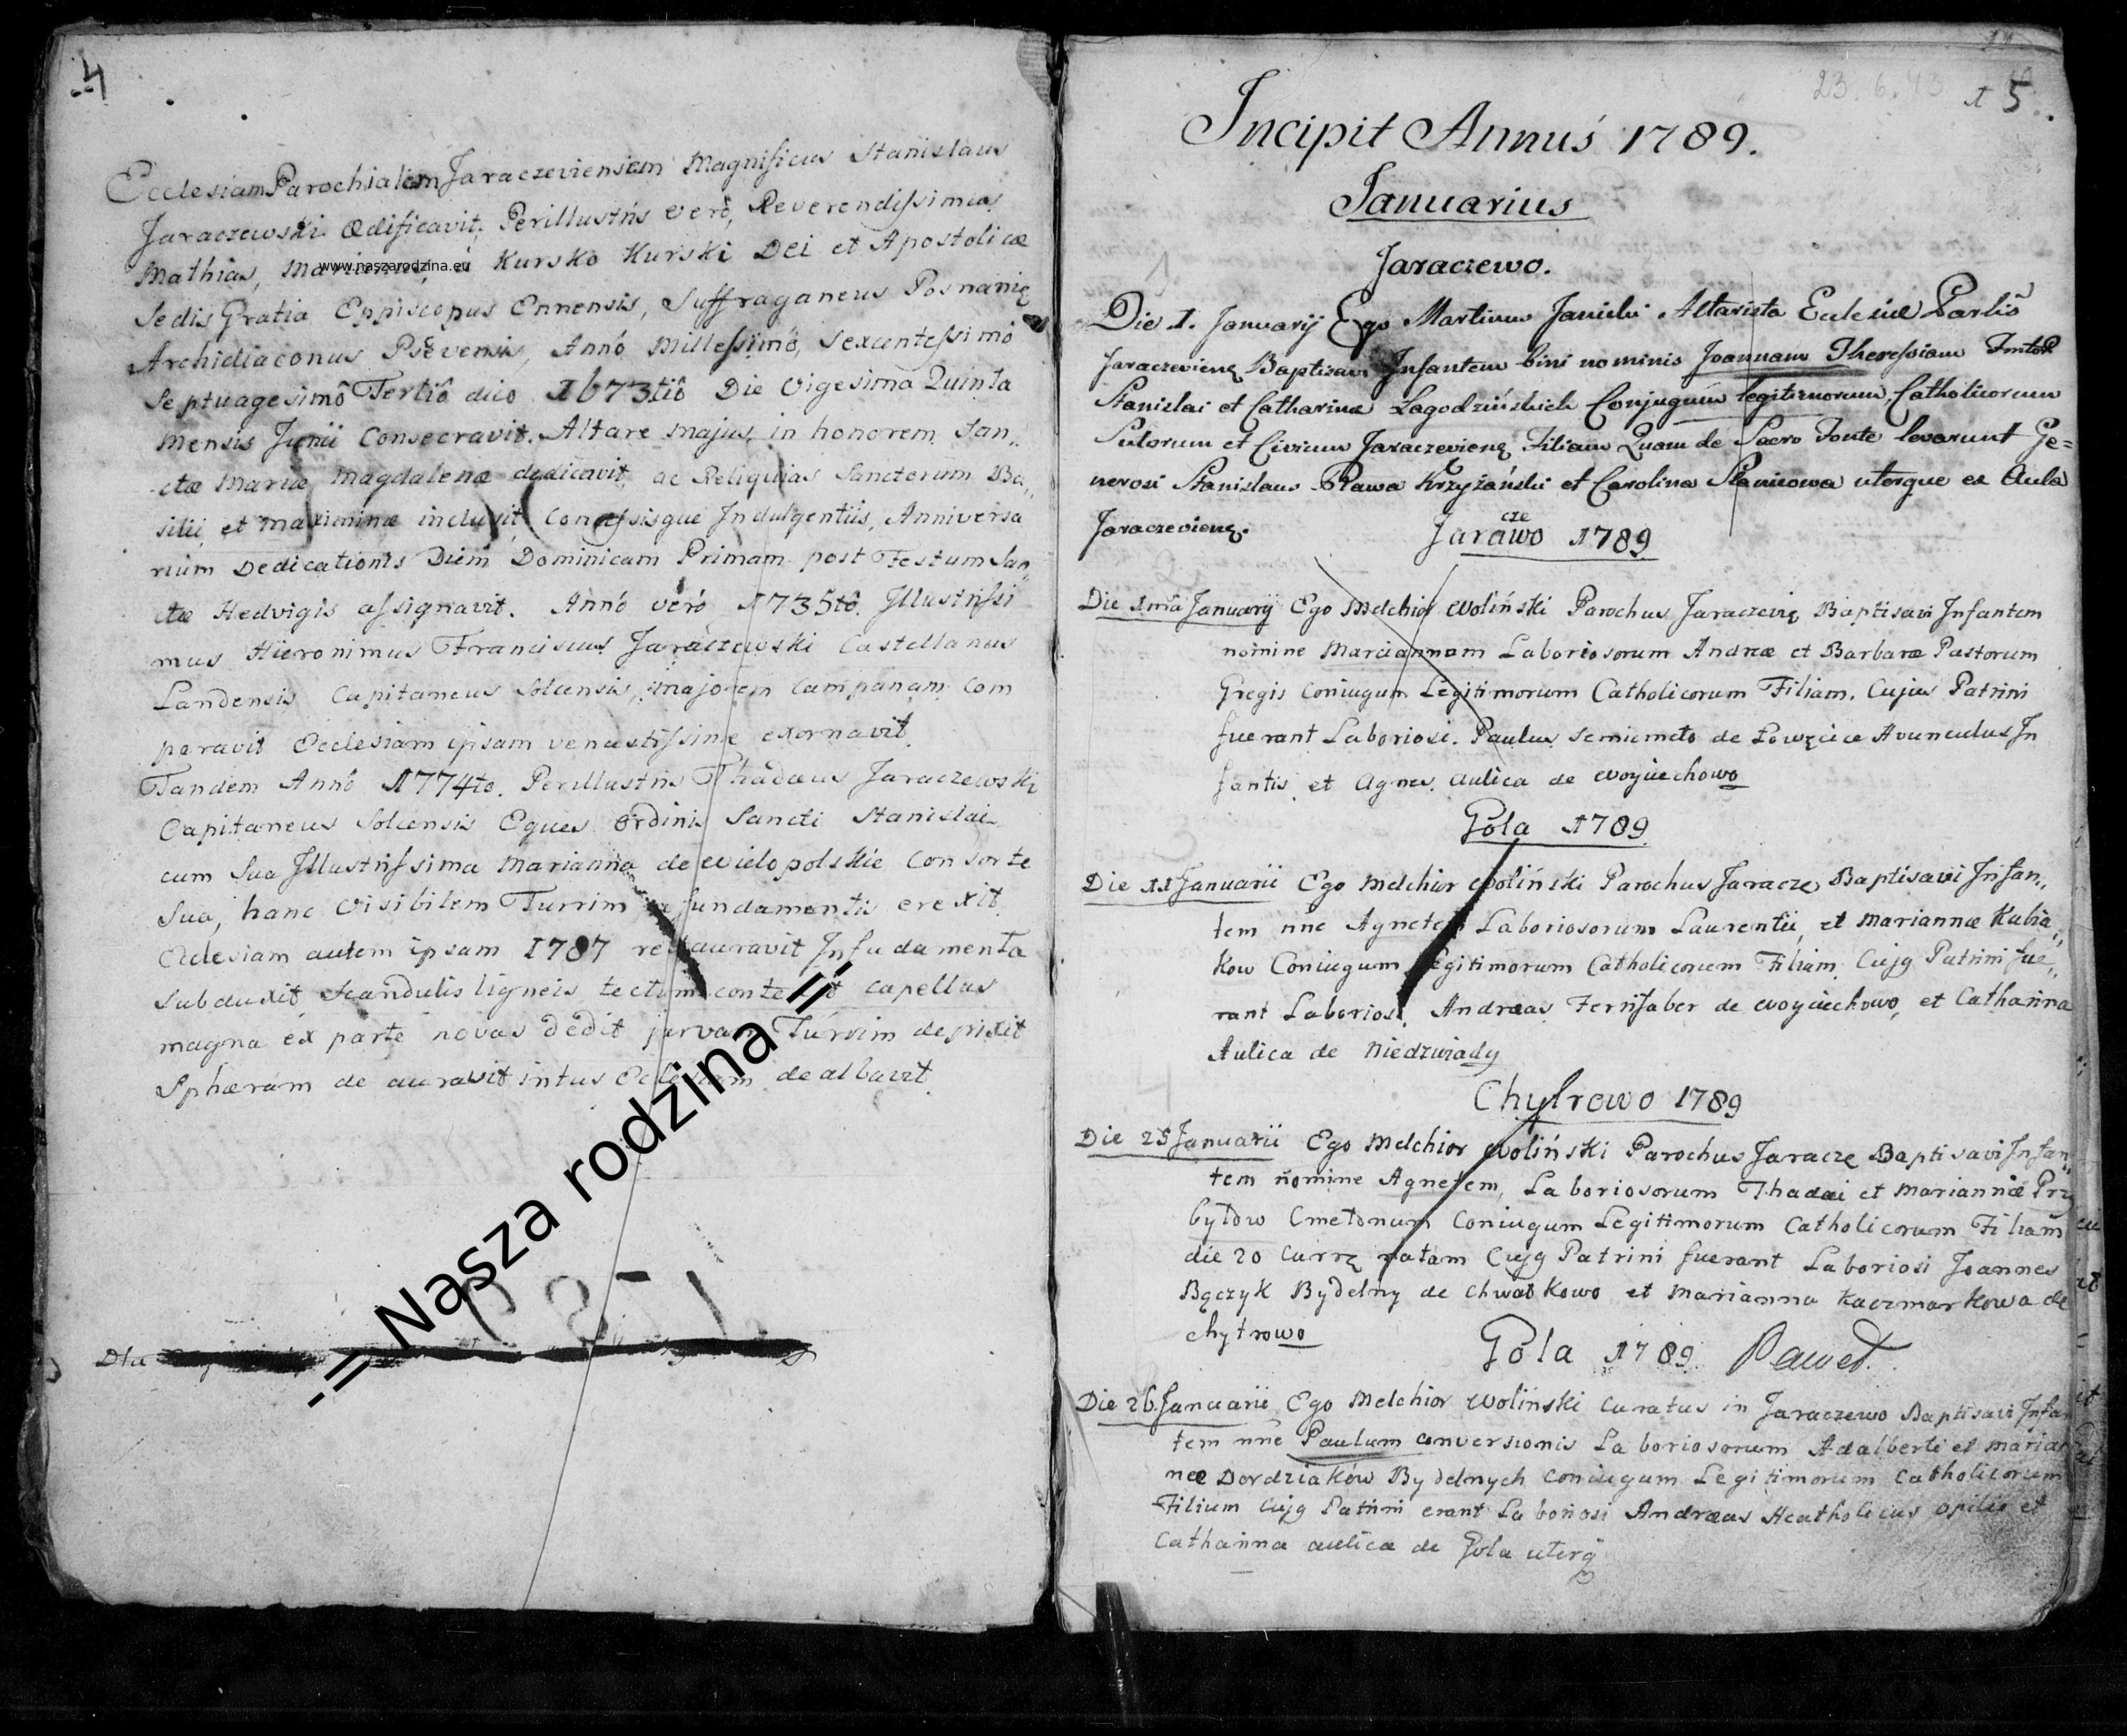 4
Ecclesiam Parochialem Jaraczeviensem Magnificus Stanislaus
Jaraczewski Ædificavit, Perillustris verò, Reverendissimus
Mathias, Kursko Kurski Dei et Apostolicæ
www.naszarodzina.eu
Sedis Gratia Eppiscopus Ennensis, Suffraganeus Posnanię
Archidiaconus Psevensis, Annô Millessimô, Sexcentessimô
Septuagesimô Tertiô dico 1673tiô Die Vigesima Quinta
Mensis Junii Consecravit. Altare Majus, in honorem San,,
ctæ Mariæ Magdalenæ dedicavit, ac Reliquias Sanctorum Ba,,
silii, et Maximinæ inclusit, Concessisque Indulgentiis, Anniversa
rium Dedicationis Diem Dominicam Primam post Festum San,,
ctæ Hedvigis assignavit. Annô verô 1735tô. Illustrissi
mus Hieronimus Franciscus Jaraczewski Castellanus
Landensis Capitaneus Solcensis, majorem Campanam Com
paravit Ecclesiam ipsam venustissime exornavit.
Tandem Annô 1774to. Perillustris Thadæus Jaraczewski
Capitaneus Solcensis Eques Ordinis Sancti Stanislai
cum Sua Illustrissima Marianna de Wielopolskie Consorte
Sua, hanc Visibilem Turrim a fundamentis erexit.
Ecclesiam autem ipsam 1787 restauravit Infudamenta
Subduxit Scandulis ligneis, tectum contexit capellas
magna ex parte novas dedit parvam Turrim depinxit
Sphæram de auravit intus Ecclesiam dealbavit.
Dla
-= Nasza rodzina =-
23. 6. 43
1 5.
Incipit Annus 1789.
Januarius
Jaraczewo.
Die 1. Januarij Ego Martinus Janicki Altarista Ecclesiæ Parlis
Jaraczevienę Baptizavi Infantem bini nominis Joannam Theressiam
Stanislai et Catharinæ Lagodzińskich Conjugum legitimorum, Catholicorum
Sutorum et Civium Jaraczevienę Filiam Quam de Sacro Fonte levarunt Ge=
nerosi Stanislaus Rawa Krzyżański et Carolina Stanicowa uterque ex Aula
Jaraczevienę.
Jaraczewo 1789
Die 1ma Januarij Ego Melchior Woliński Parochus Jaraczevię Baptisavi Infantem
nomine Mariannam Laboriosorum Andreæ et Barbaræ Pastorum
Gregis Coniugum Legitimorum Catholicorum Filiam. Cujus Patrini
fuerant Laboriosi. Paulus Semicmeto de Łowęcice Avunculus In
fantis et Agnes. Aulica de Woyciechowo
Gola 1789
Die 11 Januarii Ego Melchior Woliński Parochus Jaraczę Baptisavi Infan,,
tem nne Agnetem Laboriosorum Laurentii, et Mariannæ Kubia,,
kow Coniugum Legitimorum Catholicorum Filiam. Cujg Patrini fue,,
rant Laboriosi, Andreas Ferrifaber de Woyciechowo, et Catharina
Aulica de Niedzwiady
Chytrowo 1789
Die 25 Januarii Ego Melchior Woliński Parochus Jaraczę Baptisavi Infan,,
tem nomine Agnetem, Laboriosorum Thadæi et Mariannæ Prz
byłow Cmetonum Coniugum Legitimorum Catholicorum Filiam
die 20 Currę natam Cujg Patrini fuerant Laboriosi Joannes
Bączyk Bydelny de Chwałkowo et Marianna Kaczmarkowa de
Chytrowo
Gola 1789. Paweł.
Die 26. Januarii Ego Melchior Woliński Curatus in Jaraczewo Baptisavi Infan
tem nne Paulum conversionis Laboriosorum Adalberti et Marian
næ Dordziaków Bydelnych Coniugum Legitimorum Catholicorum
Filium Cujg Patrini erant Laboriosi Andreas Acatholicus opilio et
Catharina aulica de Gola uterq